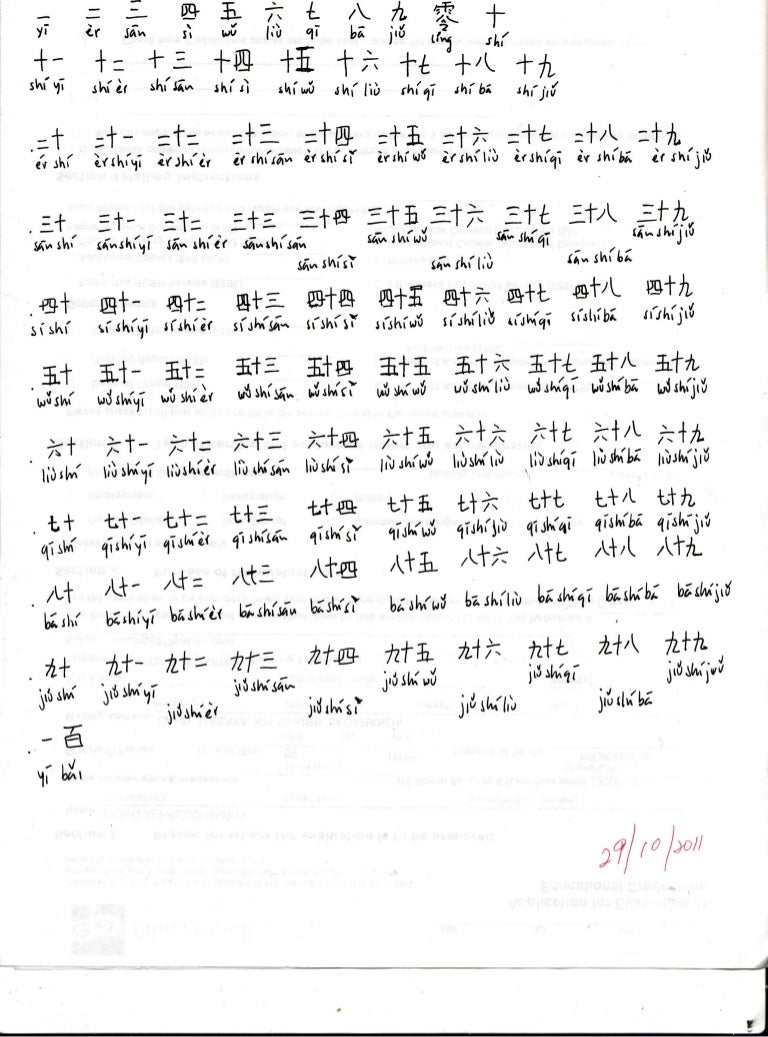 一 二 三 四 五 六 七 八 九 零 十
yī èr sān sì wǔ liù qī bā jiǔ líng shí
十一 十二 十三 十四 十五 十六 十七 十八 十九
shí yī shí èr shí sān shí sì shí wǔ shí liù shí qī shí bā shí jiǔ
二十 二十一 二十二 二十三 二十四 二十五 二十六 二十七 二十八 二十九
èr shí èr shí yī èr shí èr èr shí sān èr shí sì èr shí wǔ èr shí liù èr shí qī èr shí bā èr shí jiǔ
三十 三十一 三十二 三十三 三十四 三十五 三十六 三十七 三十八 三十九
sān shí sān shí yī sān shí èr sān shí sān sān shí sì sān shí wǔ sān shí liù sān shí qī sān shí bā sān shí jiǔ
四十 四十一 四十二 四十三 四十四 四十五 四十六 四十七 四十八 四十九
sí shí sí shí yī sí shí èr sí shí sān sí shí sǐ sí shí wǔ sí shí liù sí shí qī sí shí bā sí shí jiǔ
五十 五十一 五十二 五十三 五十四 五十五 五十六 五十七 五十八 五十九
wǔ shí wǔ shí yī wǔ shí èr wǔ shí sān wǔ shí sǐ wǔ shí wǔ wǔ shí liù wǔ shí qī wǔ shí bā wǔ shí jiǔ
六十 六十一 六十二 六十三 六十四 六十五 六十六 六十七 六十八 六十九
liù shí liù shí yī liù shí èr liù shí sān liù shí sǐ liù shí wǔ liù shí liù liù shí qī liù shí bā liù shí jiǔ
七十 七十一 七十二 七十三 七十四 七十五 七十六 七十七 七十八 七十九
qī shí qī shí yī qī shí èr qī shí sān qī shí sǐ qī shí wǔ qī shí liù qī shí qī qī shí bā qī shí jiǔ
八十 八十一 八十二 八十三 八十四 八十五 八十六 八十七 八十八 八十九
bā shí bā shí yī bā shí èr bā shí sān bā shí sǐ bā shí wǔ bā shí liù bā shí qī bā shí bā bā shí jiǔ
九十 九十一 九十二 九十三 九十四 九十五 九十六 九十七 九十八 九十九
jiǔ shí jiǔ shí yī jiǔ shí èr jiǔ shí sān jiǔ shí sǐ jiǔ shí wǔ jiǔ shí liù jiǔ shí qī jiǔ shí bā jiǔ shí jiǔ
一百
yī bǎi
29/10/2011